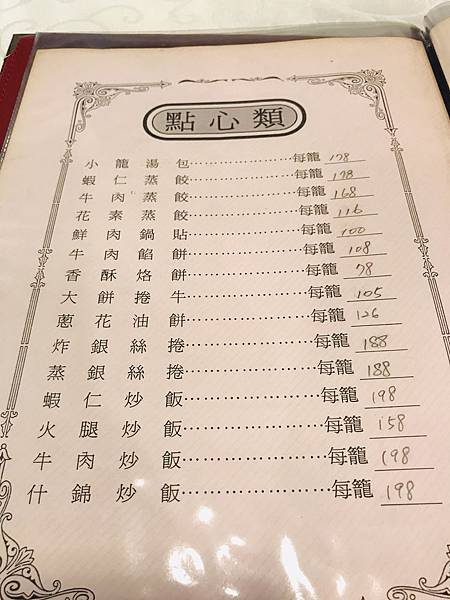 點心類
小龍湯包⋯⋯⋯⋯⋯每籠 178
蝦仁蒸餃⋯⋯⋯⋯⋯每籠 198
牛肉蒸餃⋯⋯⋯⋯⋯每籠 168
花素蒸餃⋯⋯⋯⋯⋯每籠 116
鮮肉鍋貼⋯⋯⋯⋯⋯每籠 100
牛肉餡餅⋯⋯⋯⋯⋯每籠 108
香酥烙餅⋯⋯⋯⋯⋯每籠 78
大餅捲牛⋯⋯⋯⋯⋯每籠 105
蔥花油餅⋯⋯⋯⋯⋯每籠 126
炸銀絲捲⋯⋯⋯⋯⋯每籠 188
蒸銀絲捲⋯⋯⋯⋯⋯每籠 188
蝦仁炒飯⋯⋯⋯⋯⋯每籠 198
火腿炒飯⋯⋯⋯⋯⋯每籠 158
牛肉炒飯⋯⋯⋯⋯⋯每籠 198
什錦炒飯⋯⋯⋯⋯⋯每籠 198